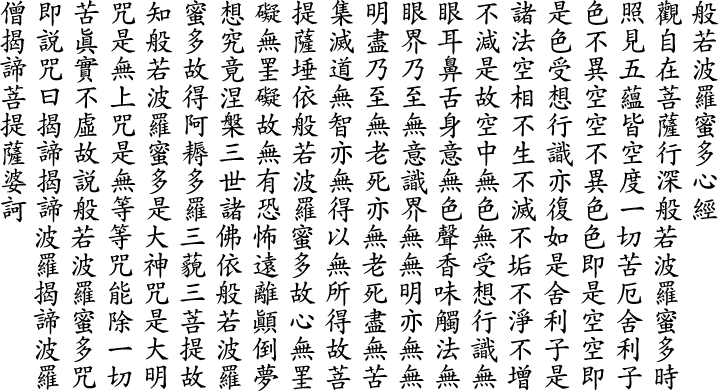 般若波羅蜜多心經
觀自在菩薩行深般若波羅蜜多時
照見五蘊皆空度一切苦厄舍利子
色不異空空不異色色即是空空即
是色受想行識亦復如是舍利子是
諸法空相不生不滅不垢不淨不增
不減是故空中無色無受想行識無
眼耳鼻舌身意無色聲香味觸法無
眼界乃至無意識界無無明亦無無
明盡乃至無老死亦無老死盡無苦
集滅道無智亦無得以無所得故菩
提薩埵依般若波羅蜜多故心無罣
礙無罣礙故無有恐怖遠離顛倒夢
想究竟涅槃三世諸佛依般若波羅
蜜多故得阿耨多羅三藐三菩提故
知般若波羅蜜多是大神咒是大明
咒是無上咒是無等等咒能除一切
苦眞實不虛故說般若波羅蜜多咒
即說咒曰揭諦揭諦波羅揭諦波羅
僧揭諦菩提薩婆訶